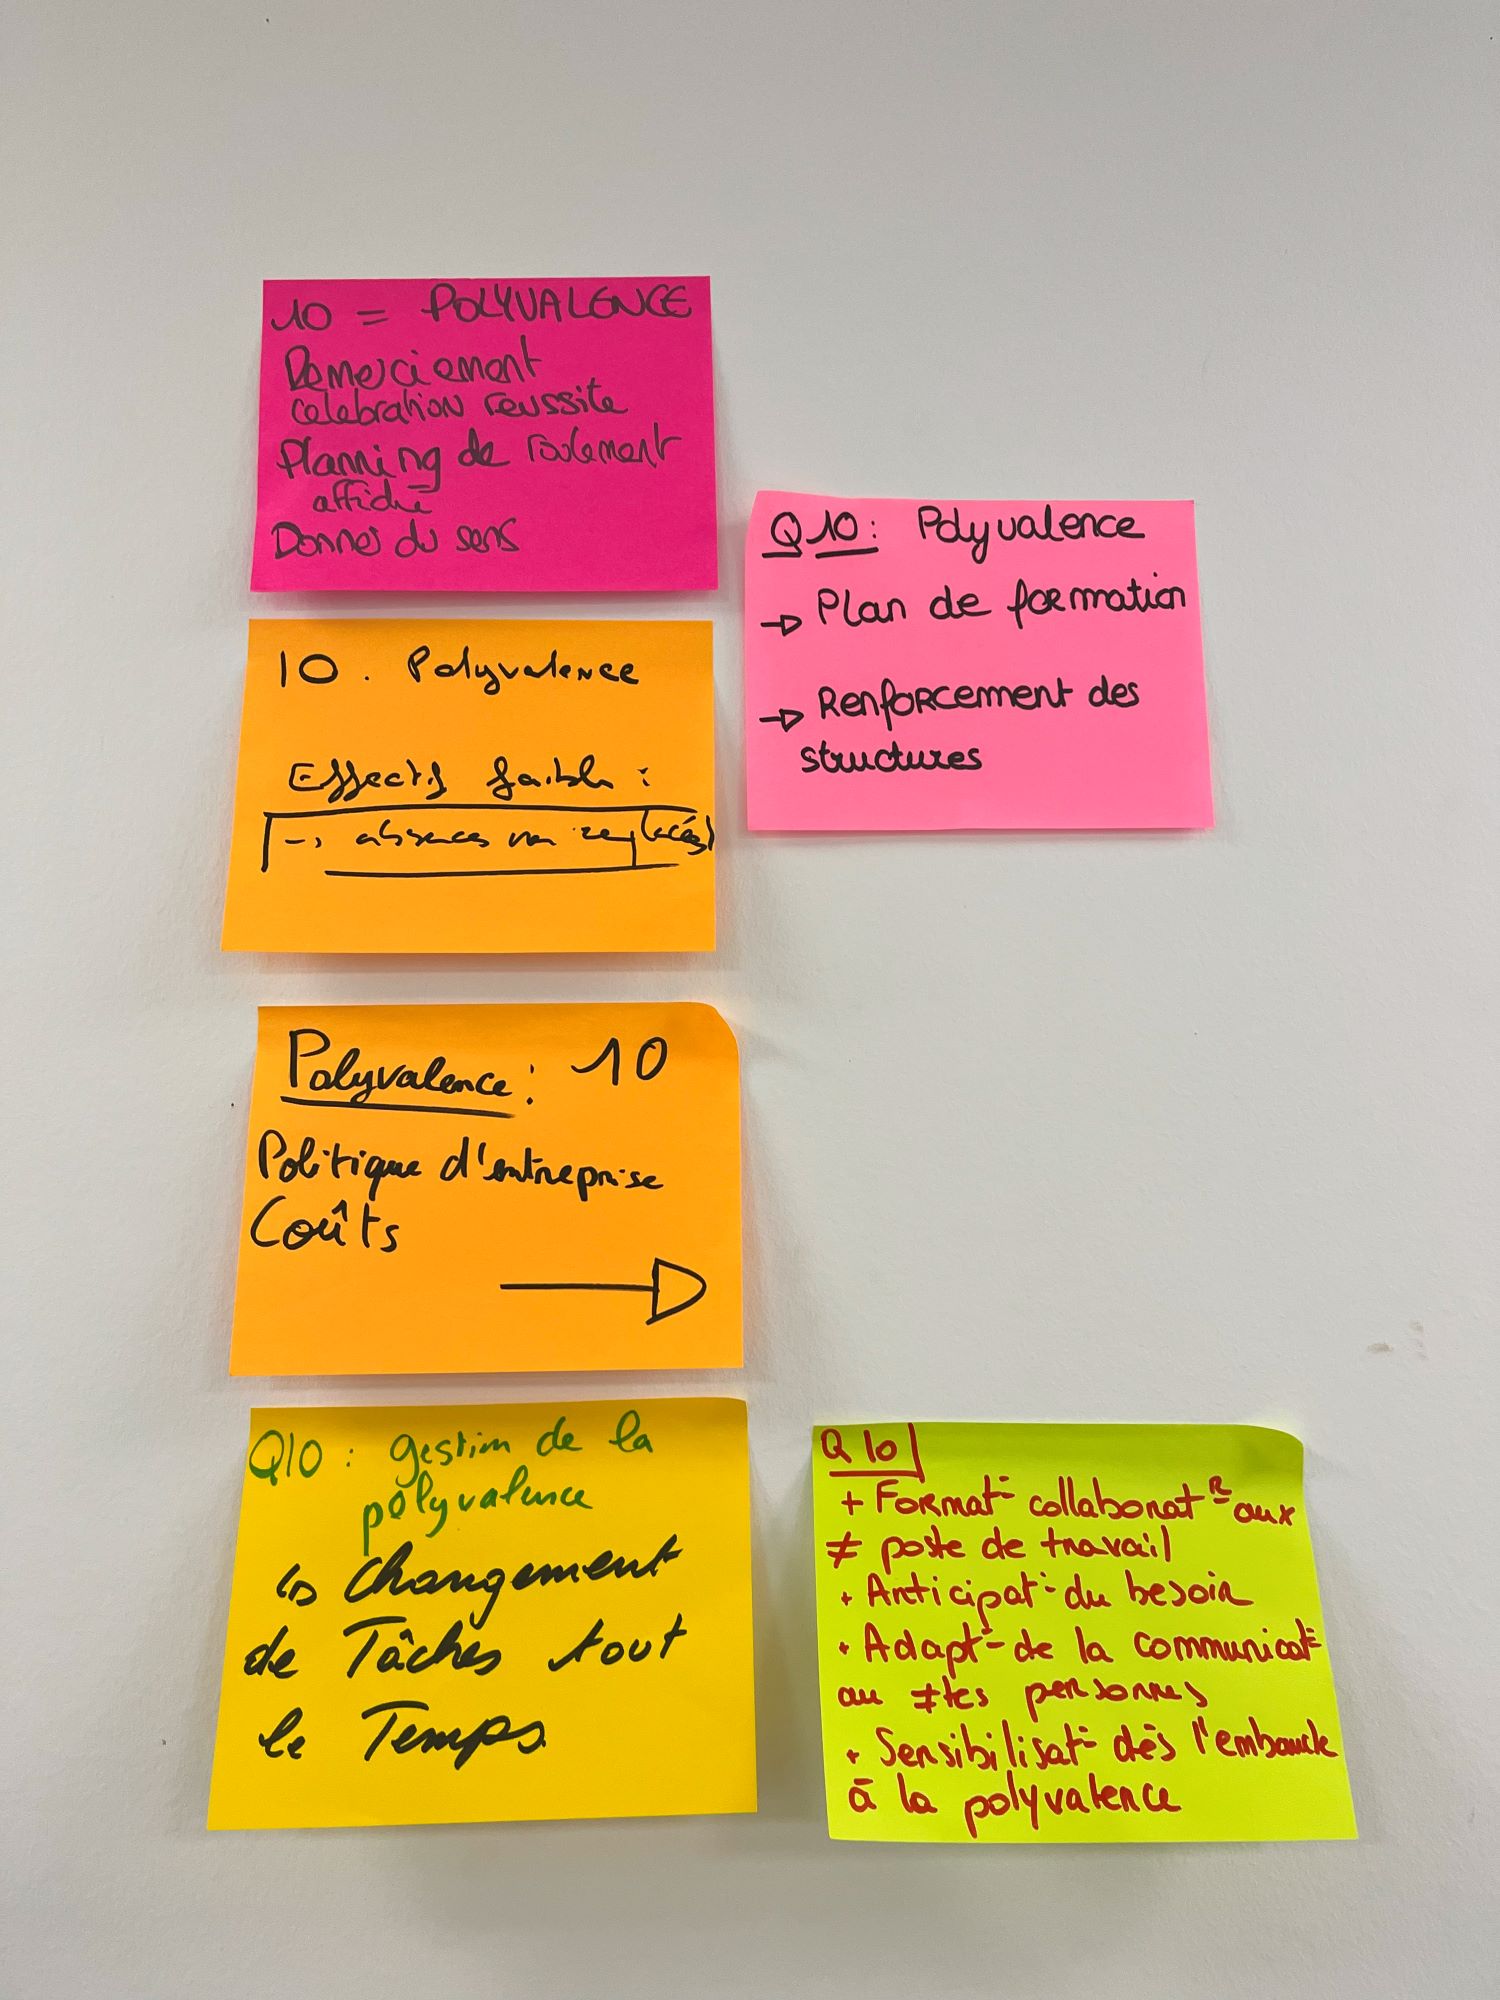 10 = POLYVALENCE
Remerciement
celebration reussite
Planning de roulement
affiché
Donner du sens
Q10: Polyvalence
→ Plan de formation
→ Renforcement des
structures
10. Polyvalence
Effectif faible :
→ absences non remplacées
Polyvalence : 10
Politique d'entreprise
Coûts
→
Q10 : gestion de la
polyvalence
↳ changement
de Tâches tout
le Temps
Q10
+ Format° collaborat^R aux
≠ poste de travail
+ Anticipat° du besoin
+ Adapt° de la communicat°
au ≠tes personnes
+ Sensibilisat° dès l'embauche
à la polyvalence